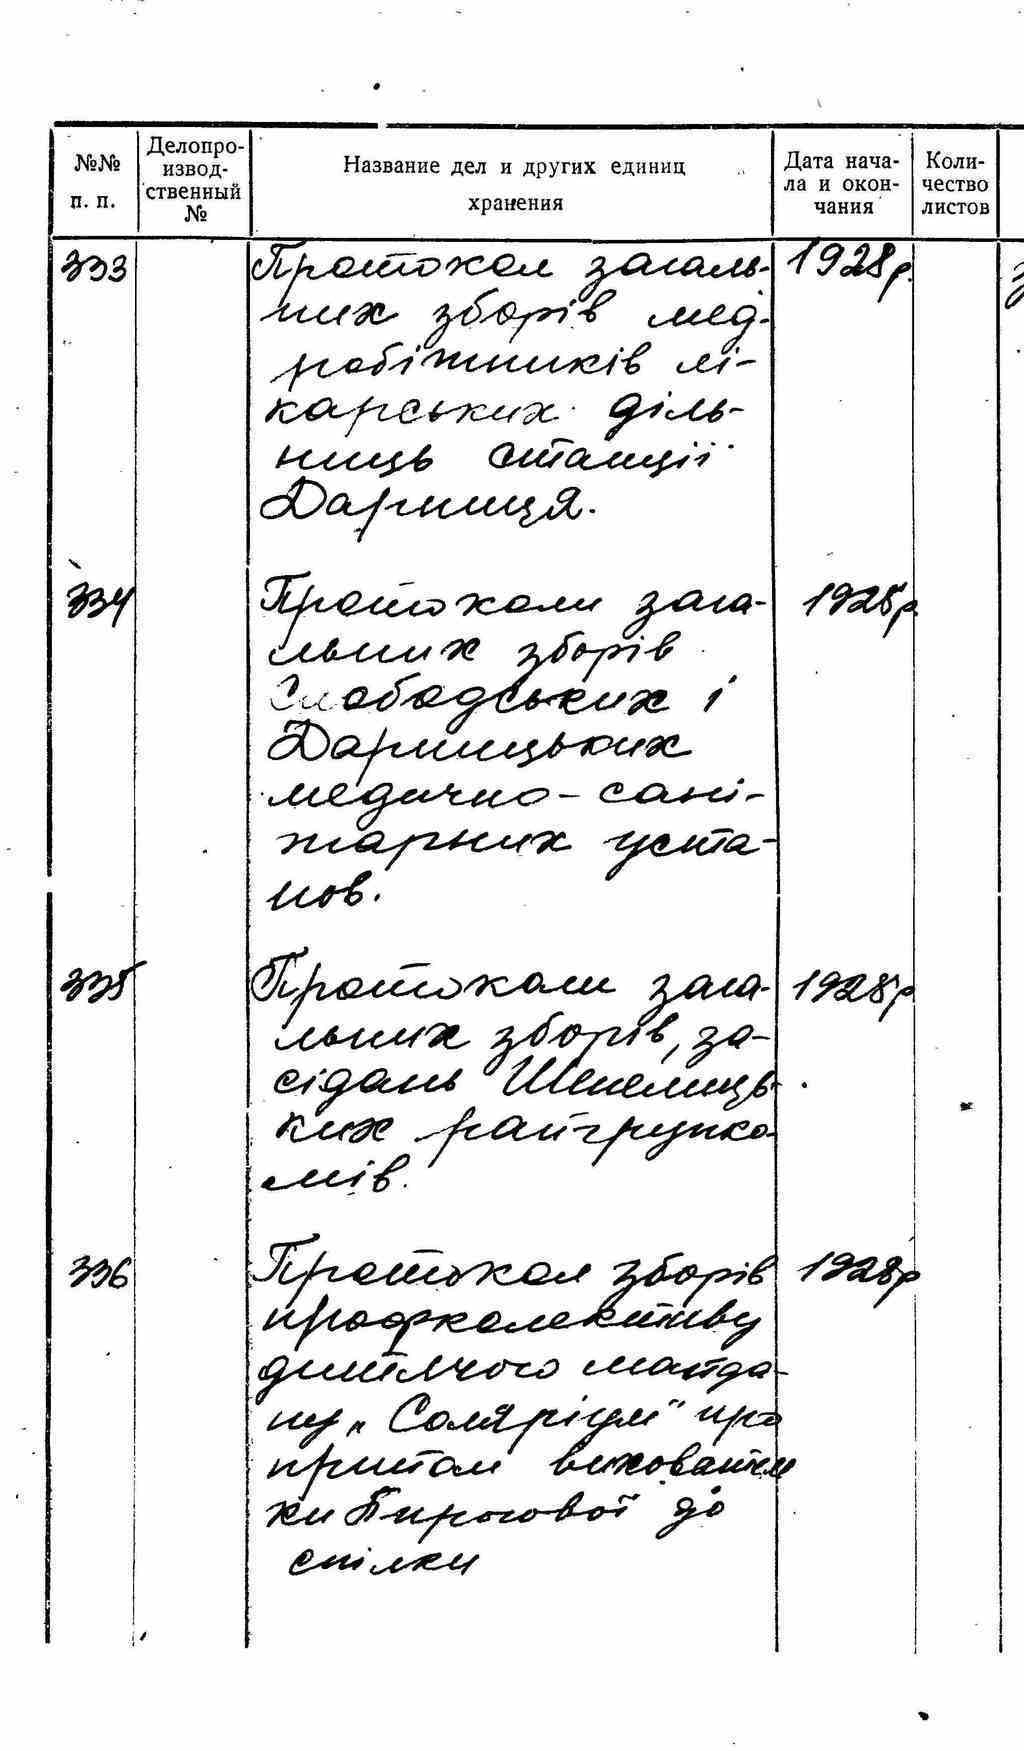 №№ п. п.
Делопро-
извод-
ственный
№
Название дел и других единиц
хранения
Дата нача-
ла и окон-
чания
Коли-
чество
листов
333 Протокол загаль- 1928р.
них зборів мед.
робітників лі-
карських діль-
ниць станції
Дарниця.
334 Протоколи зага- 1928р.
льних зборів
Слободських і
Дарницьких
медично-сані-
тарних уста-
нов.
335 Протоколи зага- 1928р
льних зборів, за-
сідань Шепелиць-
ких райгрупко-
мів.
336 Протокол зборів 1928р
профколективу
дитячого майда-
ну „Соляріум" про
прийом вихователь
ки Пирогової до
спілки